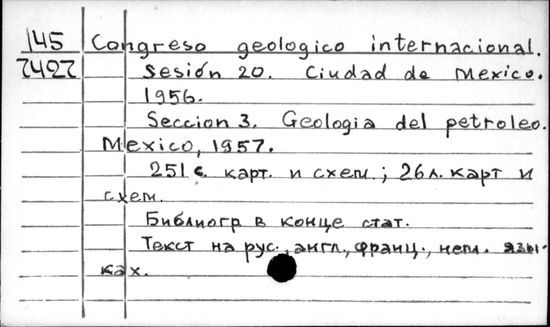 145 Congreso geologico internacional.
7427 Sesión 20. Ciudad de Mexico.
1956.
Seccion 3. Geologia del petroleo.
Mexico, 1957.
251 с. карт. и схем.; 26 л. карт и
схем.
Библиогр в конце стат.
Текст на рус., англ., франц., нем. язы-
ках.